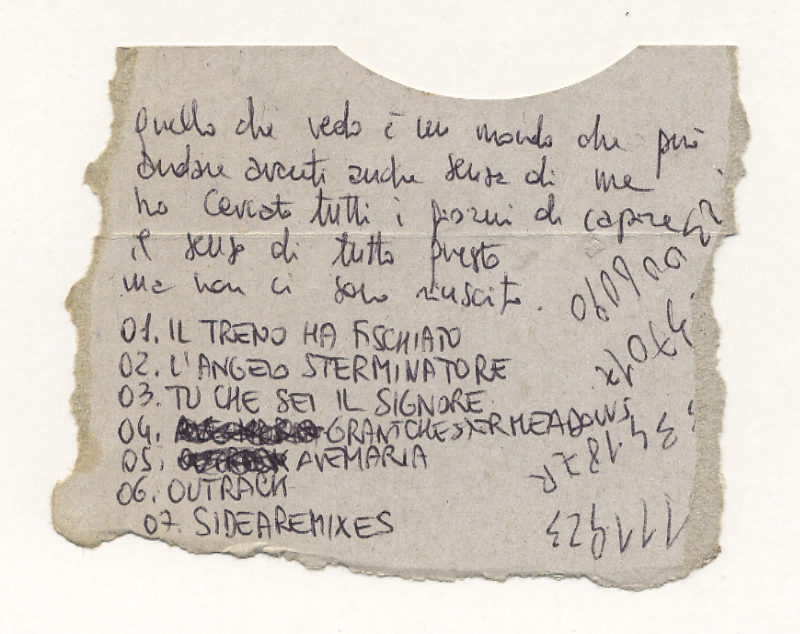 quello che vedo è un mondo che può
andare avanti anche senza di me
ho cercato tutti i giorni di capire
il senso di tutto questo
ma non ci sono riuscito.
01. IL TRENO HA FISCHIATO
02. L'ANGELO STERMINATORE
03. TU CHE SEI IL SIGNORE
04. GRANTCHESTERMEADOWS
05. AVEMARIA
06. OUTRACK
07. SIDEAREMIXES